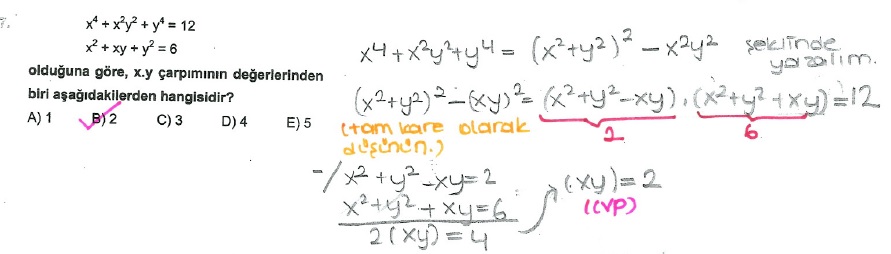 7.
x⁴ + x²y² + y⁴ = 12
x² + xy + y² = 6
olduğuna göre, x.y çarpımının değerlerinden
biri aşağıdakilerden hangisidir?
A) 1 B) 2 C) 3 D) 4 E) 5
x⁴ + x²y² + y⁴ = (x² + y²)² − x²y² şeklinde yazalım.
(x² + y²)² − (xy)² = (x² + y² − xy) . (x² + y² + xy) = 12
2 6
(tam kare olarak
düşünün.)
−/ x² + y² − xy = 2
x² + y² + xy = 6
2(xy) = 4
(xy) = 2
(CVP)